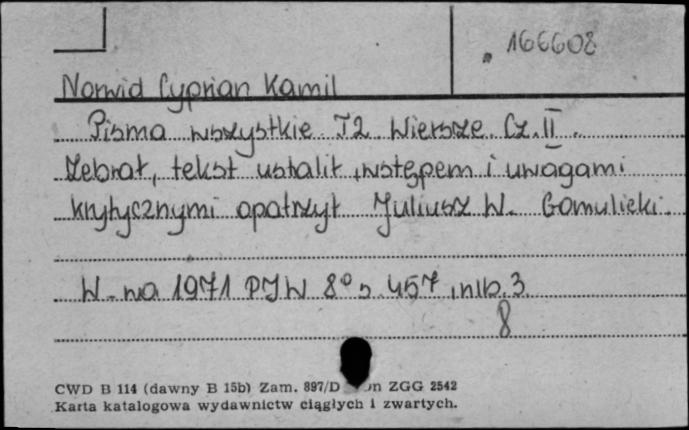 166608
Norwid Cyprian Kamil
Pisma wszystkie T2 Wiersze. Cz. II.
Zebrał, tekst ustalił, wstępem i uwagami
krytycznymi opatrzył Juliusz W. Gomulicki.
W-wa 1971 PIW 8° s. 457, nlb. 3.
8
CWD B 114 (dawny B 15b) Zam. 897/D ZGG 2542
Karta katalogowa wydawnictw ciągłych i zwartych.